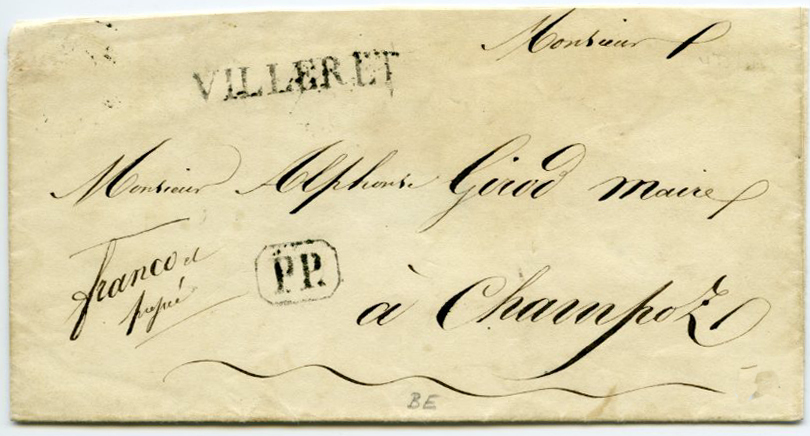 Monsieur
VILLERET
Monsieur Alphonse Girod maire
franco et
P.P.
à Champoz
BE